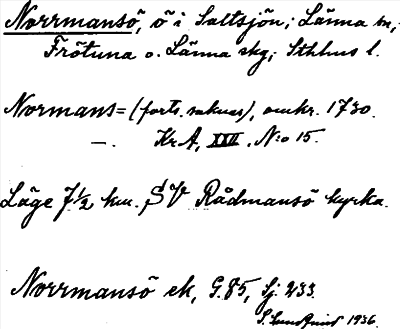 Norrmansö, ö i Saltsjön; Länna sn,;
Frötuna o. Länna skg; Sthlms l.
Normans= (forts. saknas), omkr. 1730.
—. Kr A, XXII, N:o 15.
Läge 7 1/2 km. SV Rådmansö kyrka.
Norrmansö ek, G. 85, Sj. 233.
S. Lundquist 1936.